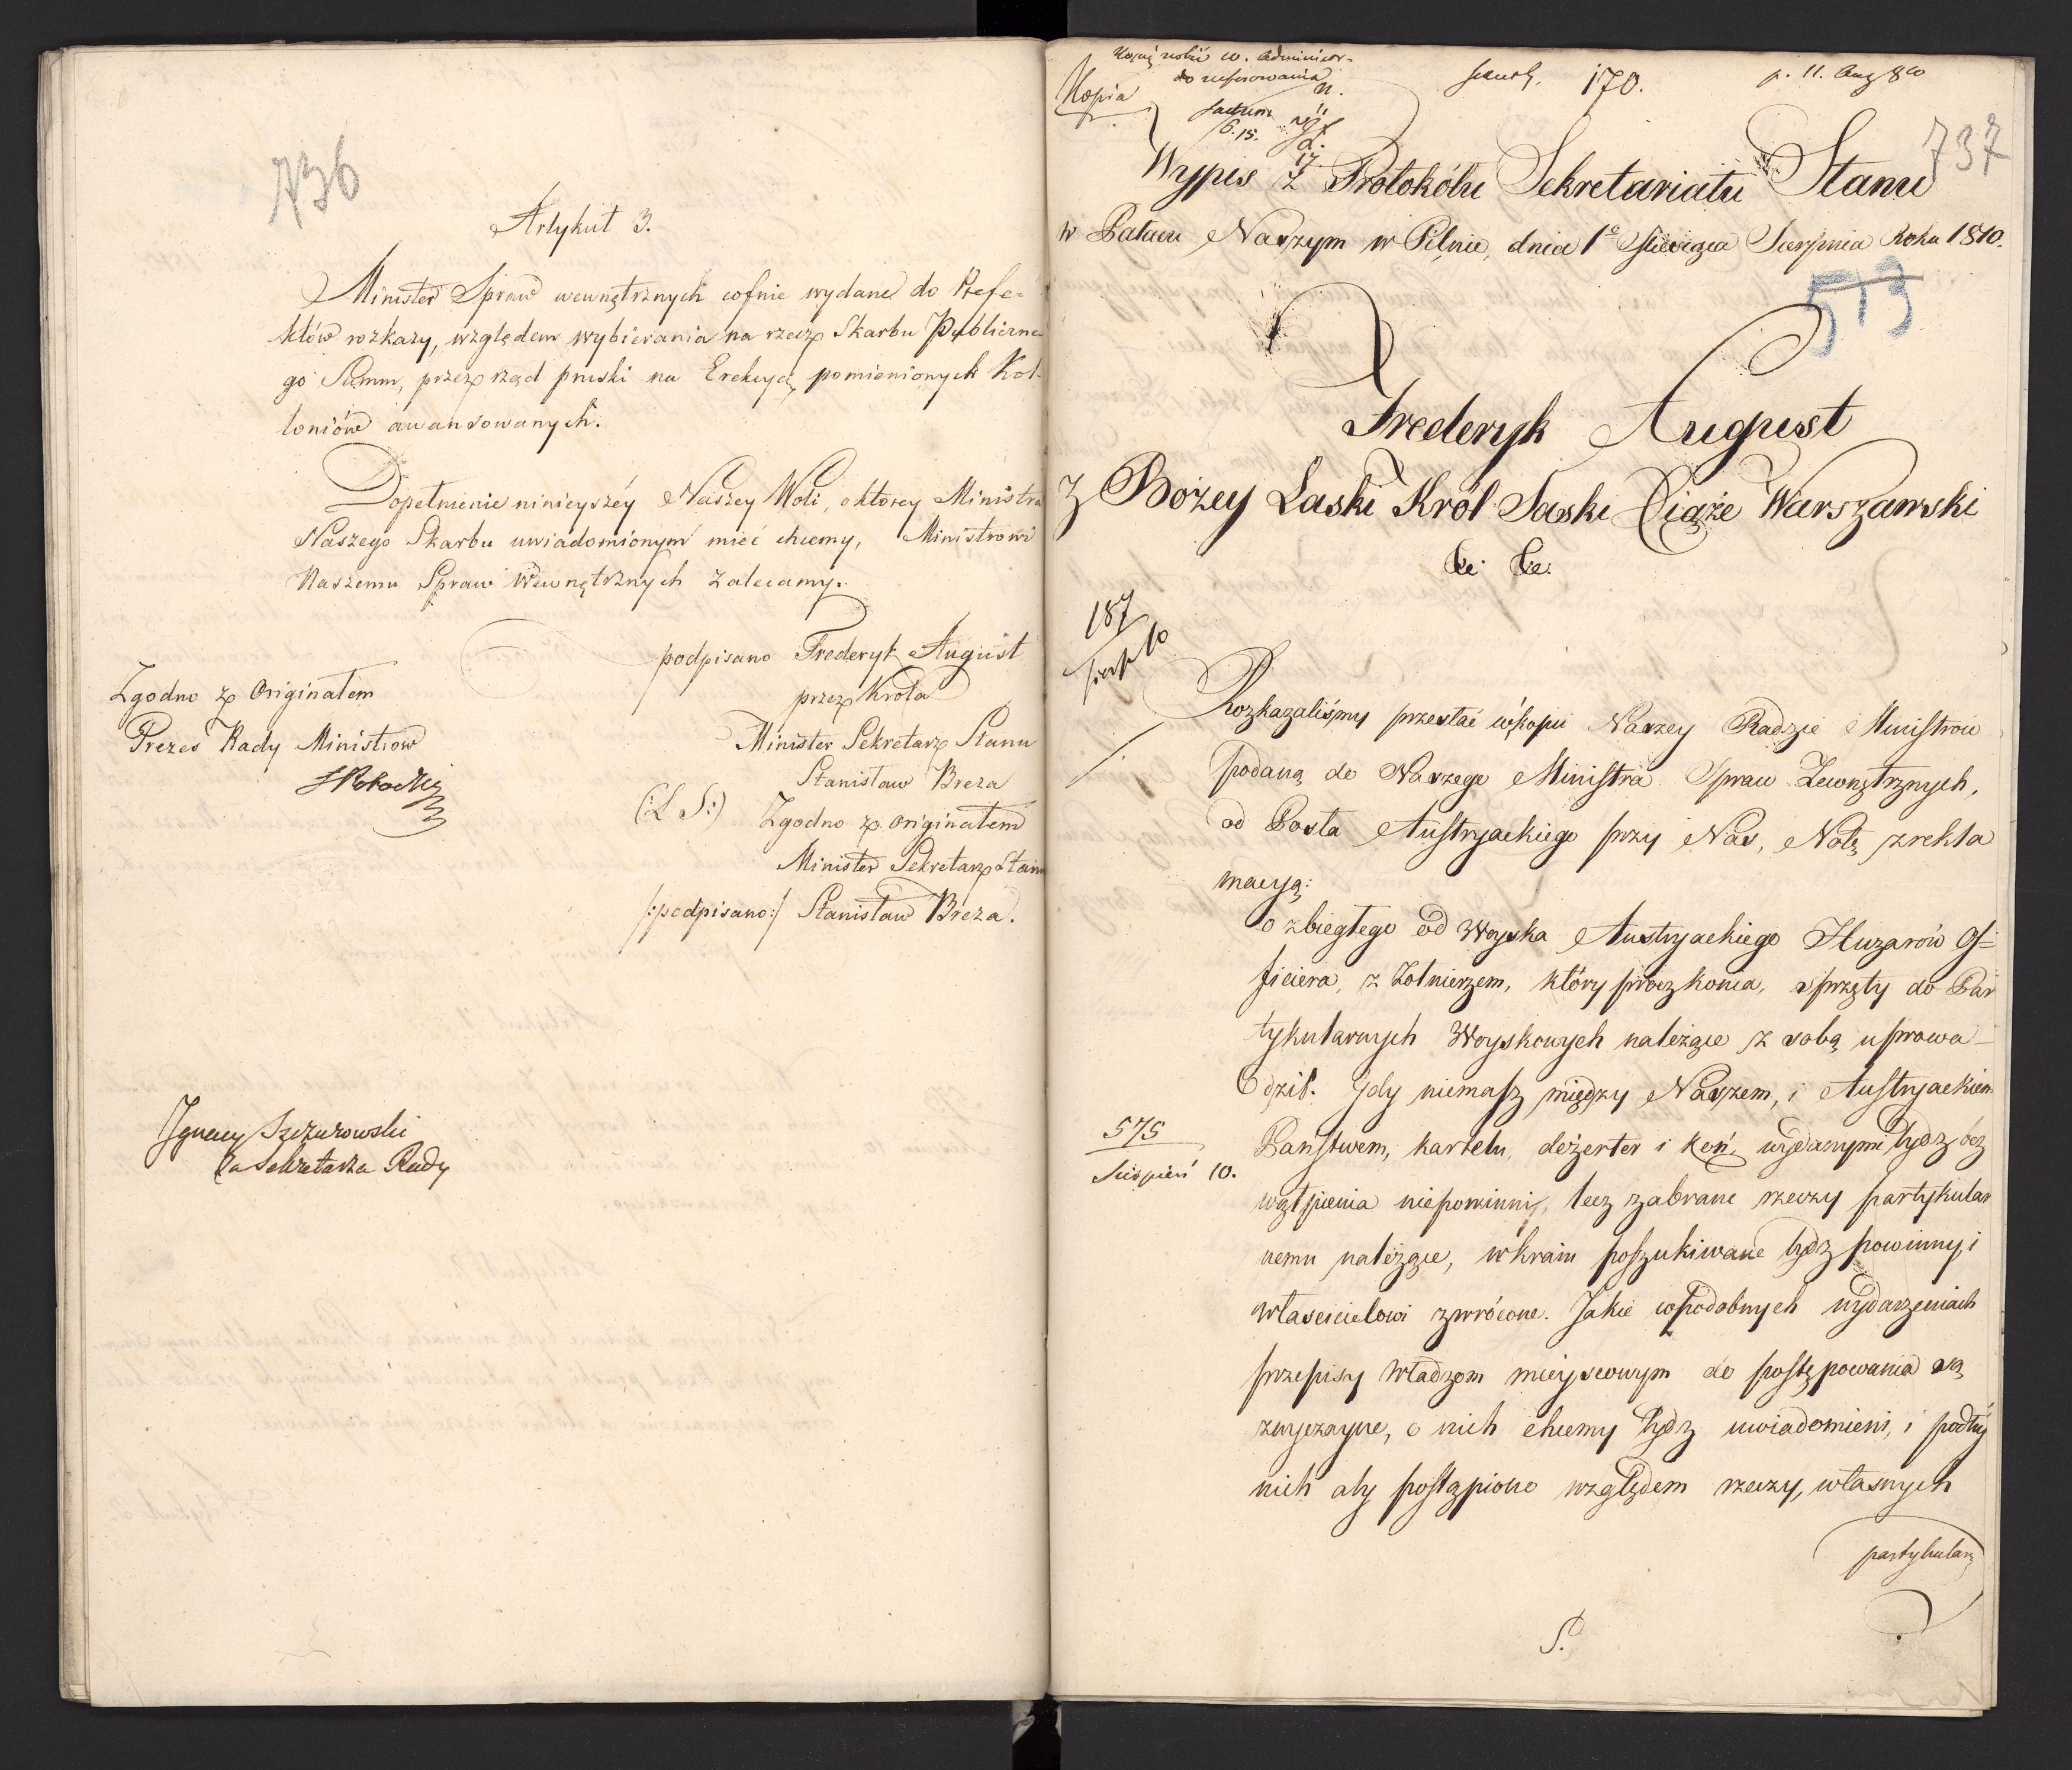 736
Artykuł 3.
Minister Spraw wewnętrznych cofnie wydane do Prefe-
któw rozkazy, względem wybierania na rzecz Skarbu Publiczne
go Summ, przez rząd pruski na Erekcyą pomienionych Kol-
loniów awansowanych.
Dopełnienie ninieyszéy Naszey Woli, o ktorey Ministra
Naszego Skarbu uwiadomionym mieć chcemy, Ministrowi
Naszemu Spraw Wewnętrznych zalecamy.
podpisano Frederyk August
przez Krola
Minister Sekretarz Stanu
Stanisław Breza
(: L S:) Zgodno z Originałem
Minister Sekretarz Stanu
/:podpisano:/ Stanisław Breza.
Zgodno z Originałem
Prezes Rady Ministrow
Ignacy Szczurowski
Za Sekretarza Rady
do referowania
Kopia
170.
p. 11. Aug 810
737
Wypis z Protokólu Sekretariatu Stanu
w Pałacu Naszym w Pilnic, dnia 1º Miesiąca Sierpnia Roku 1810.
513
Frederyk August
z Bożey Łaski Król Saski Xiąże Warszawski
&c: &c:
187
Rozkazaliśmy przesłać w kopii Naszey Radzie Ministrow
podaną do Naszego Ministra Spraw Zewnętrznych,
od Posła Austryackiego przy Nas, Notę z rekla
macyą:
o zbiegłego od Woyska Austryackiego Huzarów Of=
ficiera, z Żołnierzem, który prócz konia, sprzęty do Par
tykularnych Woyskowych należące z sobą uprowa-
dził. Gdy niemasz między Naszem, i Austryackiem
575
Sierpień 10.
Państwem, kartelu, deżerter i koń, wydanymi bydz bez
wątpienia niepowinni, lecz zabrane rzeczy partykular
nemu należące, w kraiu poszukiwane bydz powinny i
właścicielowi zwrócone. Jakie w podobnych wydarzeniach
przepisy Władzom mieyscowym do postępowania są
zwyczayne, o nich chcemy bydz uwiadomieni, i podług
nich aby postąpiono względem rzeczy, własnych
partykularz
S.